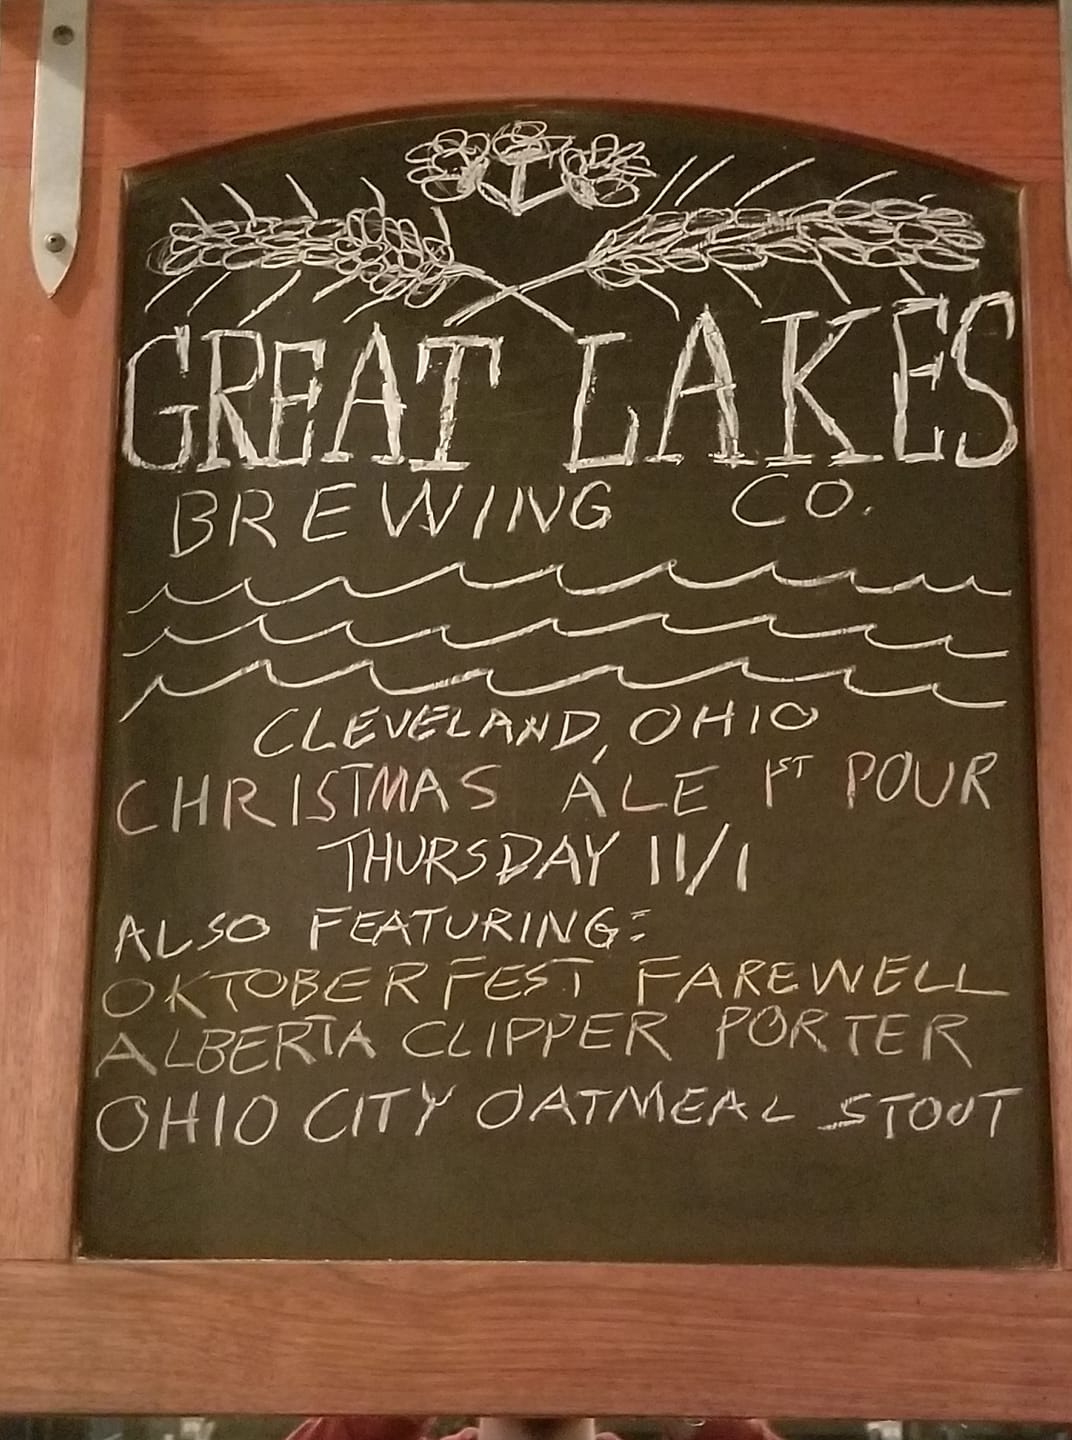 GREAT LAKES
BREWING CO.
CLEVELAND, OHIO
CHRISTMAS ALE 1ST POUR
THURSDAY 11/1
ALSO FEATURING:
OKTOBERFEST FAREWELL
ALBERTA CLIPPER PORTER
OHIO CITY OATMEAL STOUT